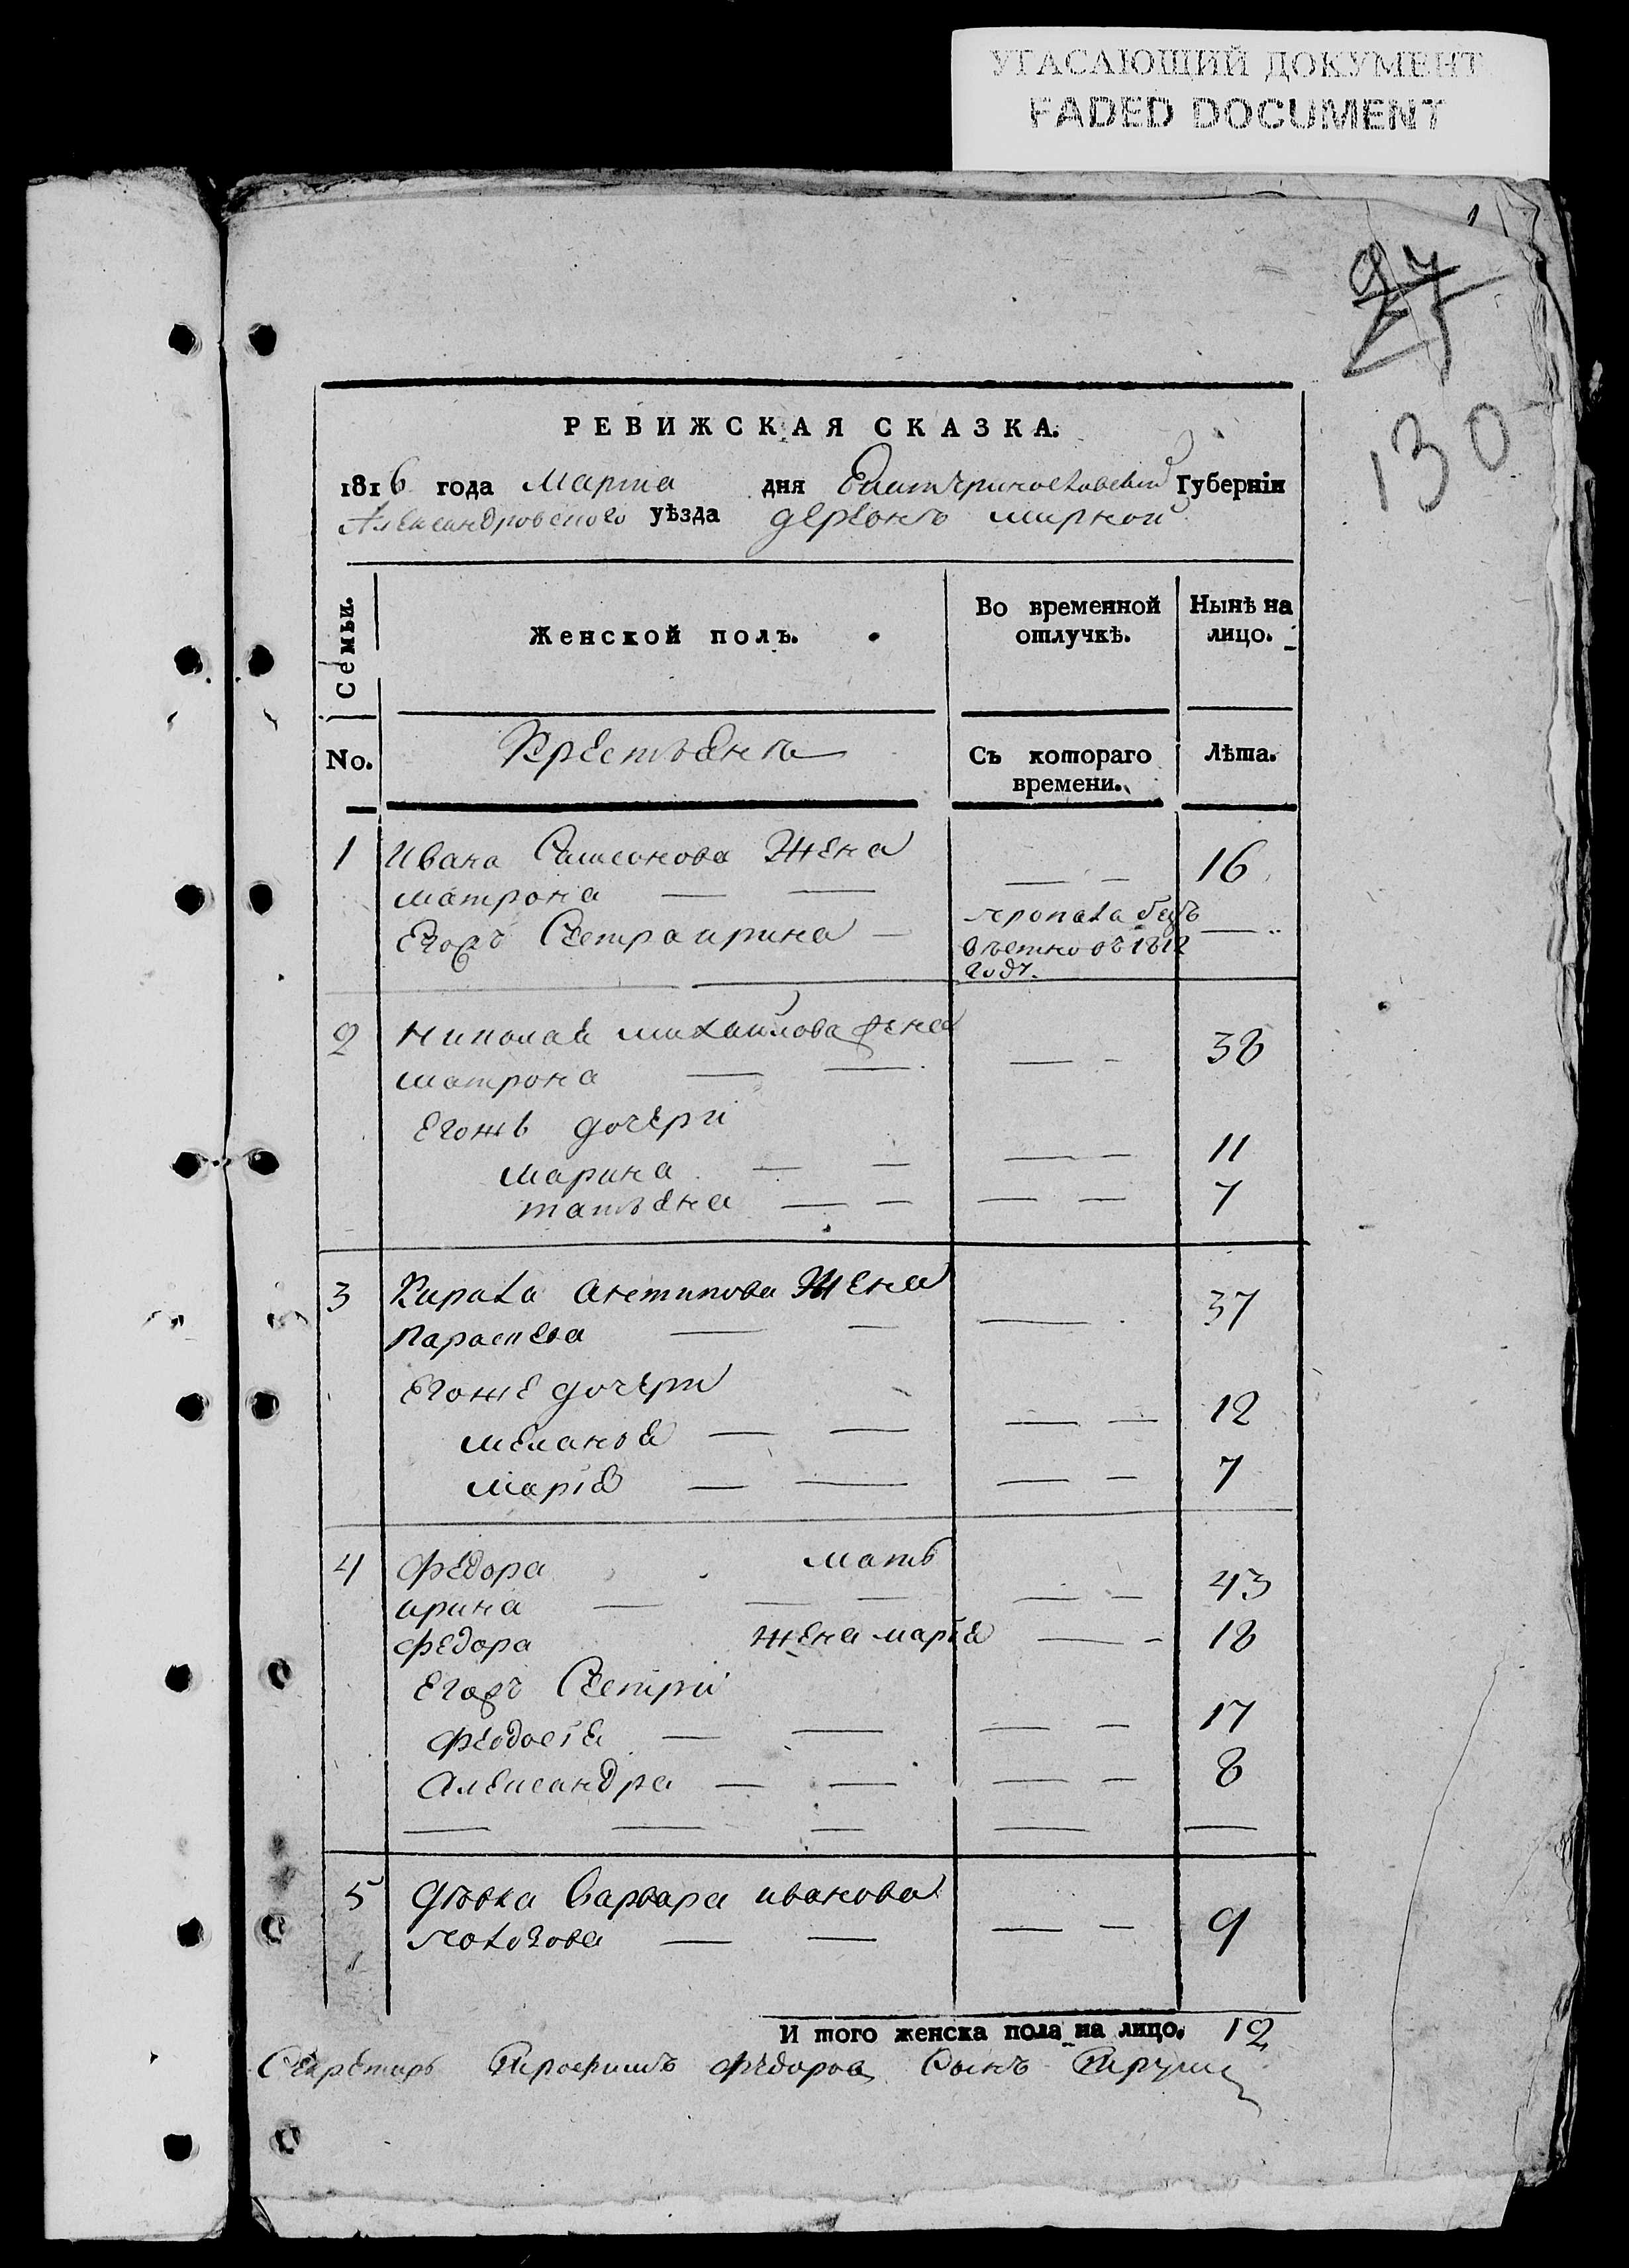 УГАСАЮЩИЙ ДОКУМЕНТ
FADED DOCUMENT
1
27
130
РЕВИЖСКАЯ СКАЗКА.
1816 года Марта дня Екатеринославской Губерніи
Александровского уѣзда деревнѣ мирной
Семьи.
Женской полъ.
Во временной отлучкѣ.
Нынѣ на лицо.
No.
Крестьянѣ
Съ котораго времени.
Лѣта.
1 Ивана Самсонова Жена
матрона — — — — 16
Егожъ Сестра ирина — пропала безъ — ..
вѣстно въ 1812
году.
2 Николая михайлова жена
матрона — — — - 38
Егожъ дочери
марина — — — — 11
татьяна — — — — 7
3 Кирала антипова Жена
Параскева — — — 37
Егоже дочери
меланья — — — — 12
марія — — — — 7
4 Федора мать
ирина — — — — — 43
федора жена марія — - 18
Егожъ Сестри
феодосія — — — — 17
Александра — — — — 8
— — — — —
5 дѣвка варвара иванова
— — — — 9
И того женска пола на лицо. 12
Секретарь Трофимъ Федоровъ Сынъ